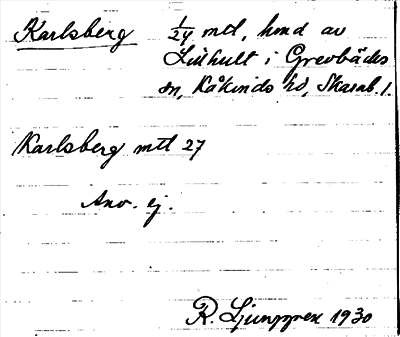 Karlsberg 1/24 mtl, hmd av
Liuhult i Grevbäcks
sn, Kåkinds hd, Skarab. l.
Karlsberg mtl 27
Anv. ej.
R. Ljunggren 1930